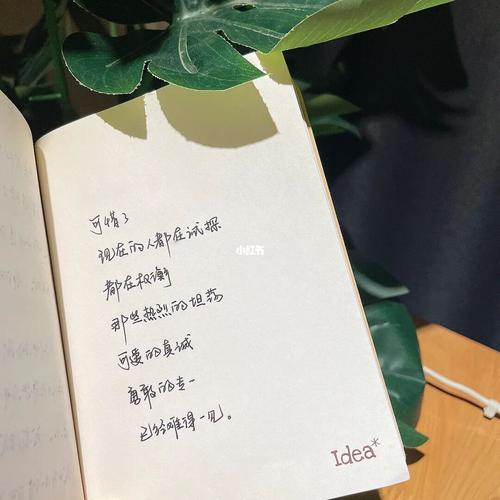 可惜了
现在的人都在试探
都在权衡
那些热烈的坦荡
可爱的真诚
勇敢的专一
已经难得一见。
小红书
Idea*